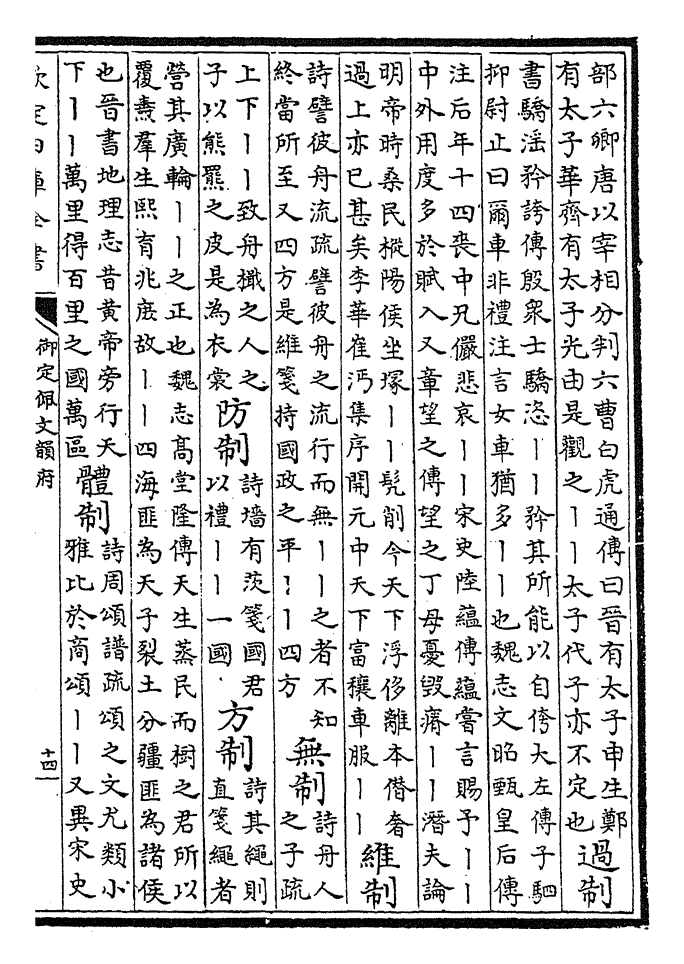 部六卿唐以宰相分判六曹白虎通傳曰晉有太子申生鄭
有太子華齊有太子光由是觀之丨丨太子代子亦不定也
過制
書驕淫矜誇傳殷衆士驕恣丨丨矜其所能以自侉大左傳子駟
抑尉止曰爾車非禮注言女車猶多丨丨也魏志文昭甄皇后傳
注后年十四喪中兄儼悲哀丨丨宋史陸蘊傳蘊嘗言賜予丨丨
中外用度多於賦入又章望之傳望之丁母憂毀瘠丨丨潛夫論
明帝時桑民樅陽侯坐塚丨丨髠削今天下浮侈離本僭奢
過上亦已甚矣李華崔沔集序開元中天下富穰車服丨丨
維制
詩譬彼舟流疏譬彼舟之流行而無丨丨之者不知
終當所至又四方是維箋持國政之平丨丨四方
無制
詩舟人
之子疏
上下丨丨致舟檝之人之
子以熊羆之皮是為衣裳
防制
詩墻有茨箋國君
以禮丨丨一國
方制
詩其繩則
直箋繩者
營其廣輪丨丨之正也魏志高堂隆傳天生蒸民而樹之君所以
覆燾羣生熙育兆庶故丨丨四海匪為天子裂土分疆匪為諸侯
也晉書地理志昔黄帝旁行天
下丨丨萬里得百里之國萬區
體制
詩周頌譜疏頌之文尤類小
雅比於商頌丨丨又異宋史
欽定四庫全書
御定佩文韻府
十四